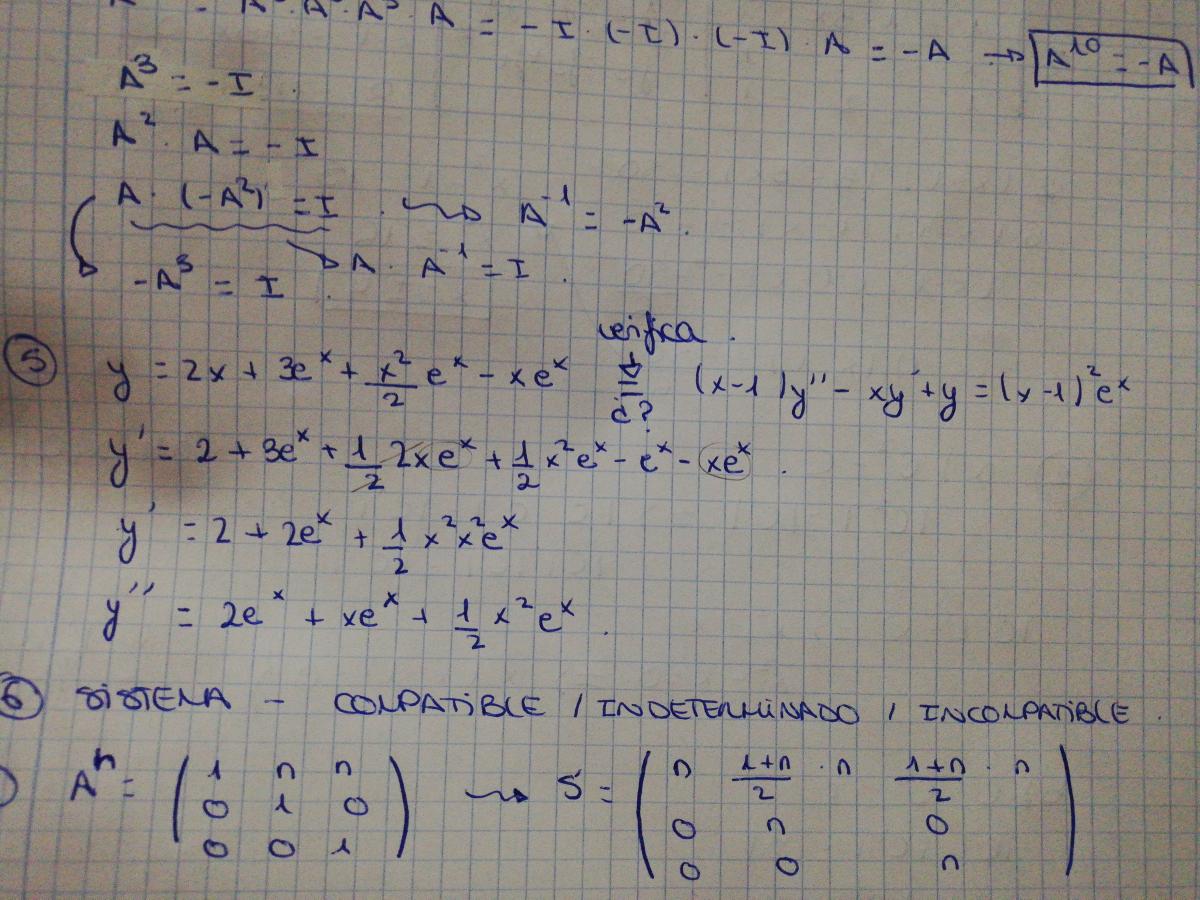 = A³ · A³ · A³ · A = - I · (-I) · (-I) · A = -A → A¹⁰ = -A
A³ = -I.
A² · A = -I
A · (-A²) = I. → A⁻¹ = -A².
→ A · A⁻¹ = I.
-A³ = I.
verifica.
⑤ y = 2x + 3eˣ + x²/2 eˣ - xeˣ ¿? (x-1)y'' - xy' + y = (x-1)²eˣ
y' = 2 + 3eˣ + 1/2 2xeˣ + 1/2 x²eˣ - eˣ - xeˣ.
y' = 2 + 2eˣ + 1/2 x²x²eˣ
y'' = 2eˣ + xeˣ + 1/2 x²eˣ.
⑥ SISTEMA - COMPATIBLE / INDETERMINADO / INCOMPATIBLE.
Aⁿ = ( 1 n n → S = ( n 1+n/2 · n 1+n/2 · n
0 1 0 0 n 0
0 0 1 ) 0 0 n )